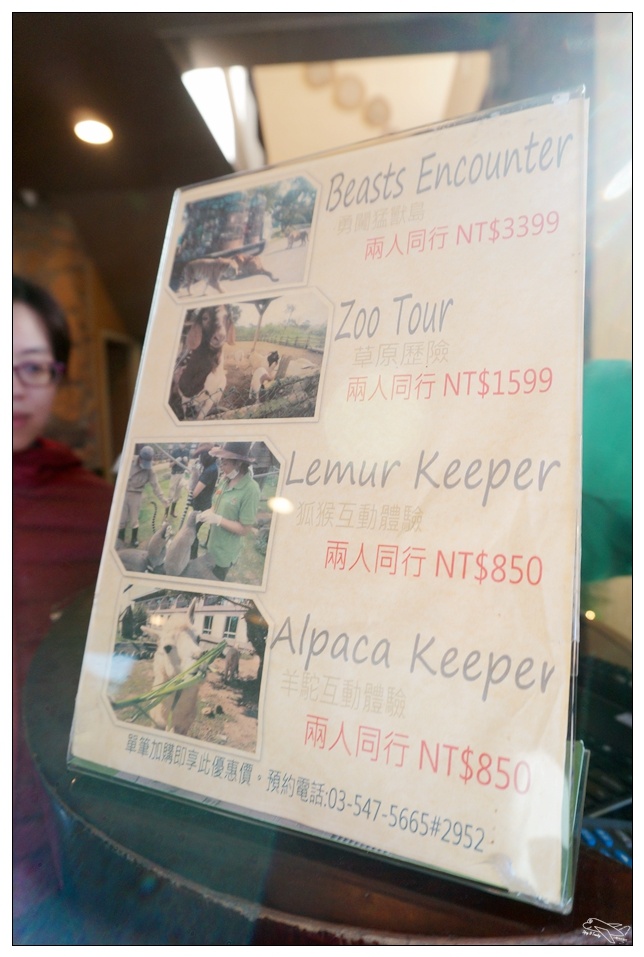 Beasts Encounter
勇闖猛獸島
兩人同行 NT$3399
Zoo Tour
草原歷險
兩人同行 NT$1599
Lemur Keeper
狐猴互動體驗
兩人同行 NT$850
Alpaca Keeper
羊駝互動體驗
兩人同行 NT$850
單筆加購即享此優惠價。預約電話:03-547-5665#2952